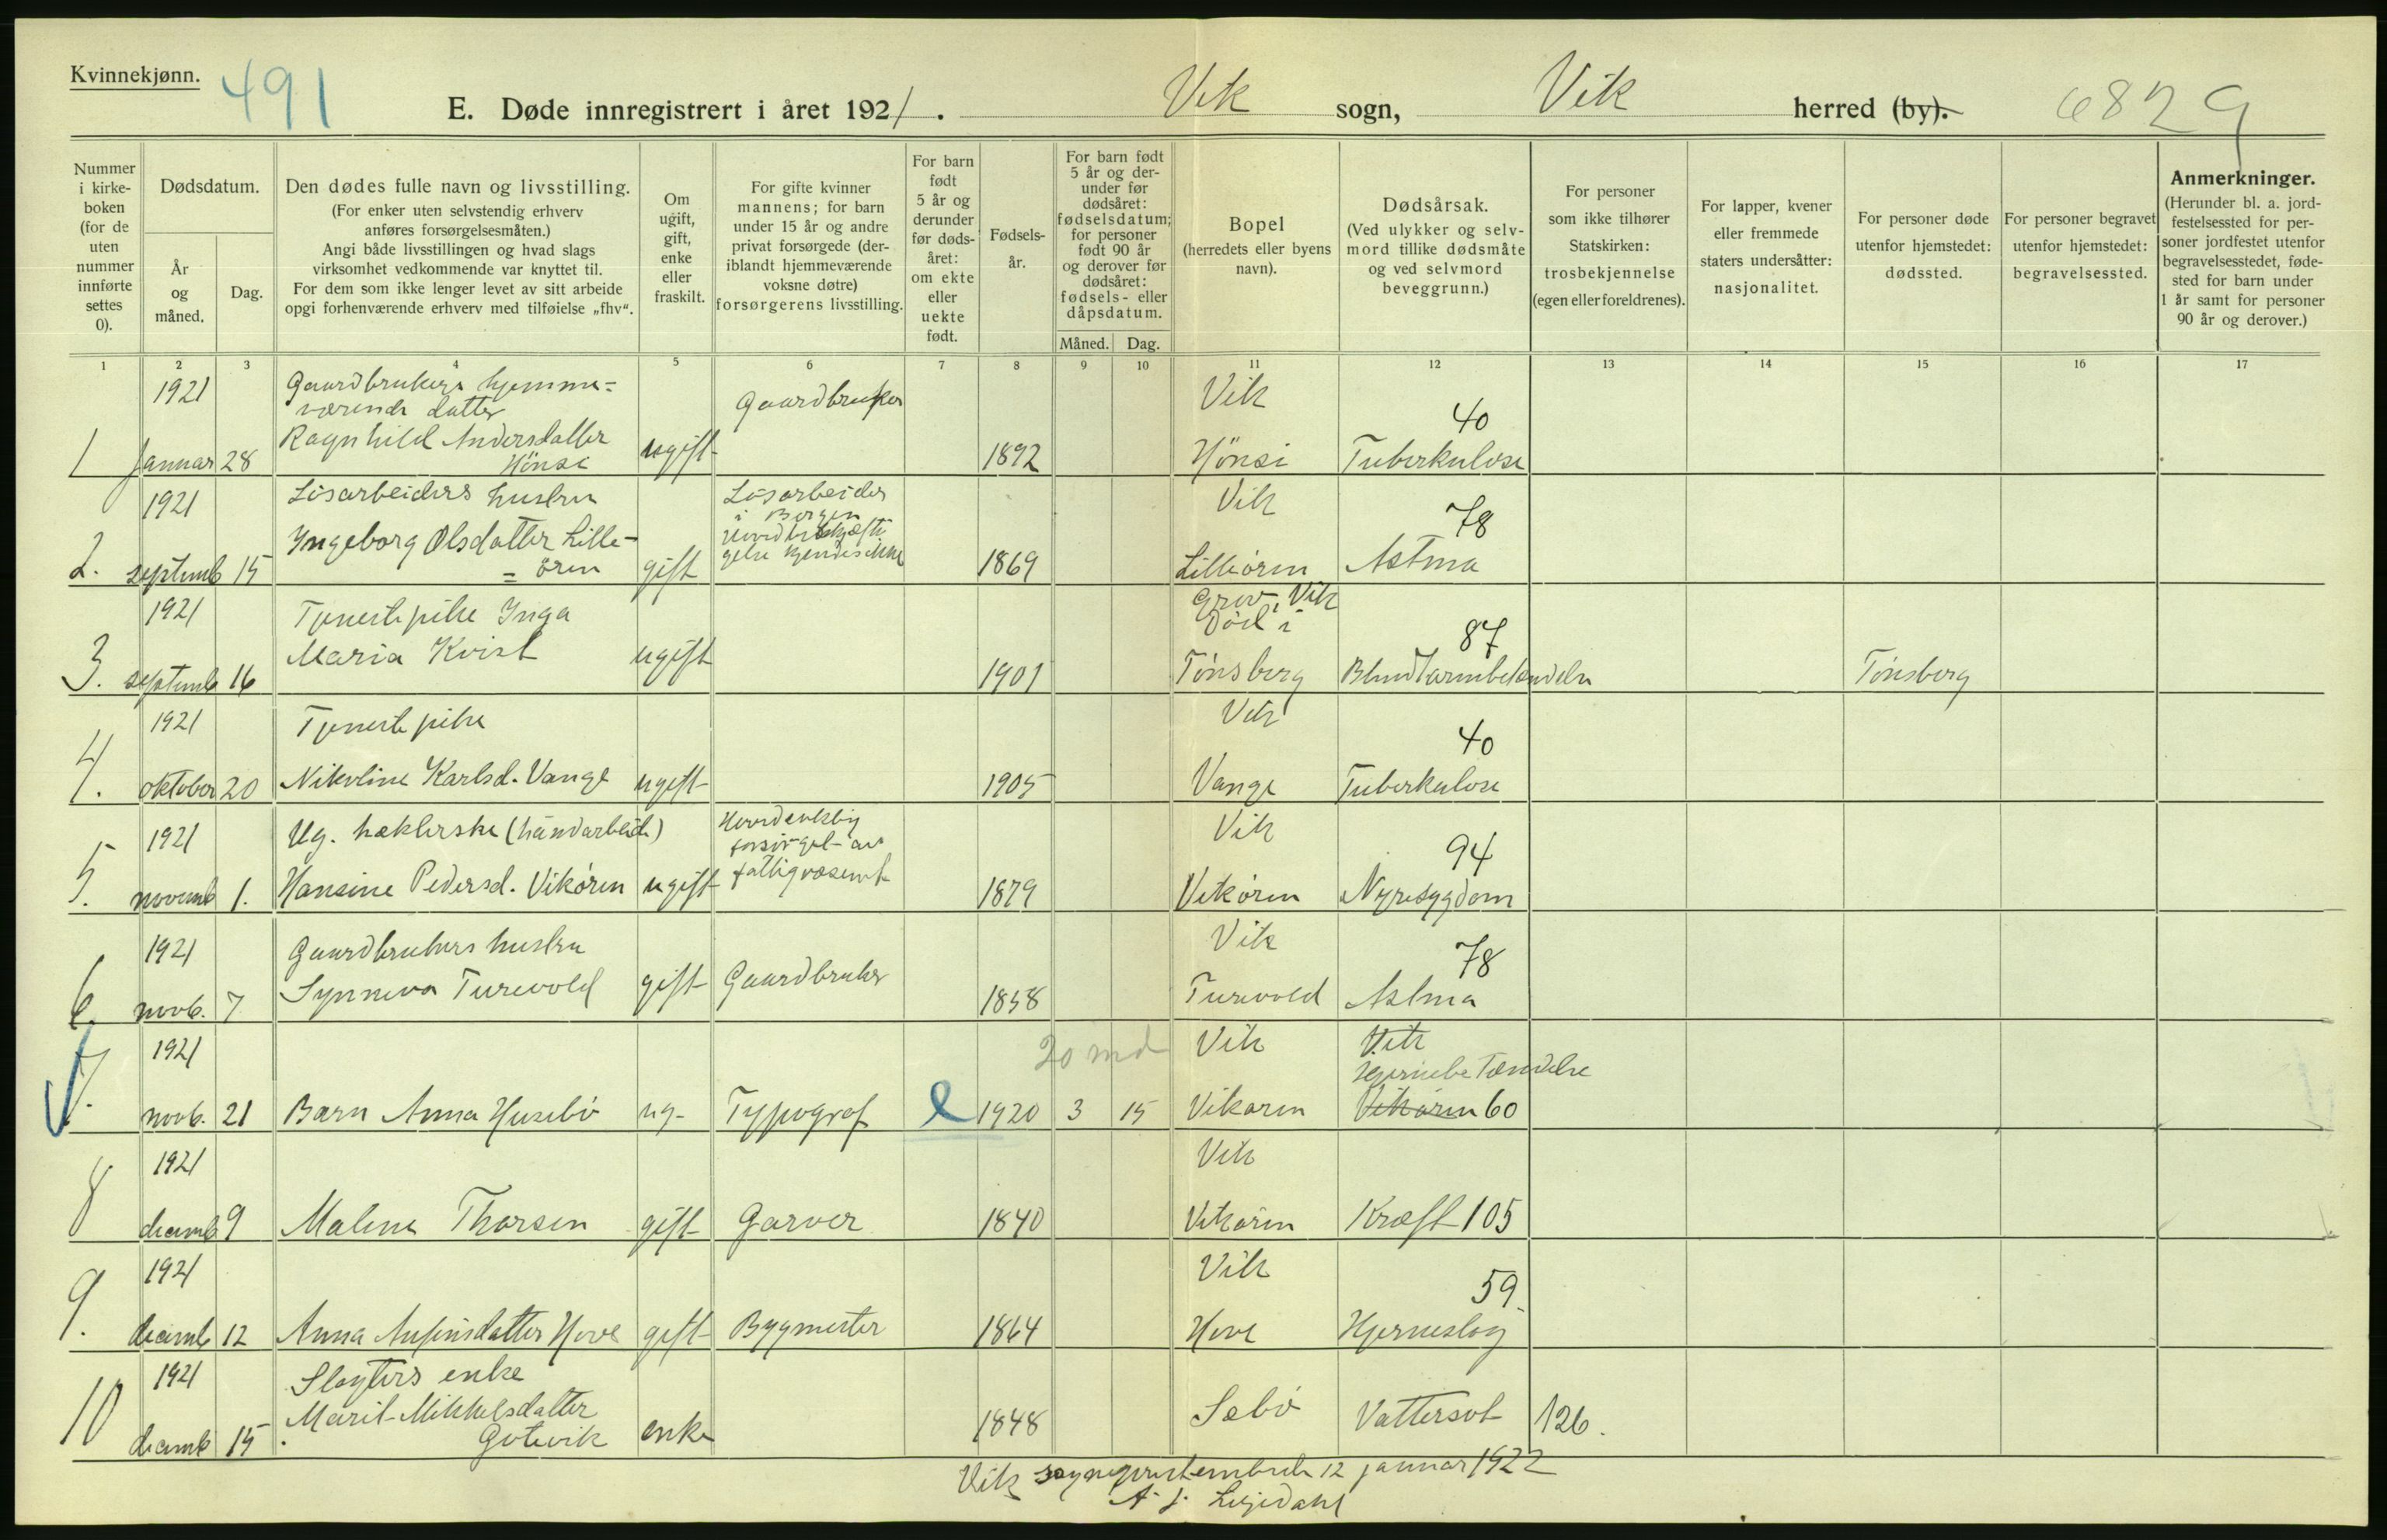 Kvinnekjønn.
491
E. Døde innregistrert i året 1921.
Vik sogn, Vik herred (by).
6829
Nummer i kirke-boken (for de uten nummer innførte settes 0).
Dødsdatum.
År og måned.
Dag.
Den dødes fulle navn og livsstilling.
(For enker uten selvstendig erhverv anføres forsørgelsesmåten.)
Angi både livsstillingen og hvad slags virksomhet vedkommende var knyttet til.
For dem som ikke lenger levet av sitt arbeide opgi forhenværende erhverv med tilføielse „fhv“.
Om ugift, gift, enke eller fraskilt.
For gifte kvinner mannens; for barn under 15 år og andre privat forsørgede (deriblandt hjemmeværende voksne døtre) forsørgerens livsstilling.
For barn født 5 år og derunder før dødsåret: om ekte eller uekte født.
Fødsels-år.
For barn født 5 år og derunder før dødsåret: fødselsdatum; for personer født 90 år og derover før dødsåret: fødsels- eller dåpsdatum.
Måned. Dag.
Bopel (herredets eller byens navn).
Dødsårsak.
(Ved ulykker og selvmord tillike dødsmåte og ved selvmord beveggrunn.)
For personer som ikke tilhører Statskirken: trosbekjennelse (egen eller foreldrenes).
For lapper, kvener eller fremmede staters undersåtter: nasjonalitet.
For personer døde utenfor hjemstedet: dødssted.
For personer begravet utenfor hjemstedet: begravelsessted.
Anmerkninger.
(Herunder bl. a. jordfestelsessted for personer jordfestet utenfor begravelsesstedet, fødested for barn under 1 år samt for personer 90 år og derover.)
1 2 3 4 5 6 7 8 9 10 11 12 13 14 15 16 17
1921 Gaardbrukers hjemme=
værende datter Gaardbruker Vik 40
Ragnhild Andersdatter
1 Januar 28 Hönsi ugift 1892 Hönsi Tuberkulose
1921 Lösarbeiders hustru Lösarbeider Vik
i Bergen 78
Ingeborg Olsdatter Lille-
gelse kjendes ikke
2. septemb 15 = ören gift 1869 Lilleören Astma
1921 Tjenestepike Inga Vik
Död i 87
Maria Kvist ugift
3. septemb 16 1901 Tönsberg Blindtarmbetændelse Tönsberg
1921 Tjenestepike Vik 40
4. oktober 20 Nikoline Karlsd. Vange ugift 1905 Vange Tuberkulose
1921 Ug. hæklerske (håndarbeide) Vik 94
forsörget av
fattigvæsenet
5. novemb 1. Hansine Pedersd. Vikören ugift 1879 Vikören Nyresygdom
1921 Gaardbrukers hustru Vik 78
6. novb. 7 Synneva Turevold gift Gaardbruker 1858 Turevold Astma
1921 20 md Vik Vik
Hjernebetændelse
7. novb. 21 Barn Anna Husebö ug. Typograf e 1920 3 15 Vikören Vikören 60
1921 Vik
8 decemb 9 Malena Thorsen gift Garver 1840 Vikören Kræft 105
1921 Vik 59.
9. decemb 12 Anna Anfinsdatter Hove gift Bygmester 1864 Hove Hjerneslag
1921 Slagters enke
Marit Mikkelsdatter Sæbö Vattersot 126.
10 decemb 15. Gotevik enke 1848
Vik sogneprestembede 12 januar 1922
A. J. Liljedahl